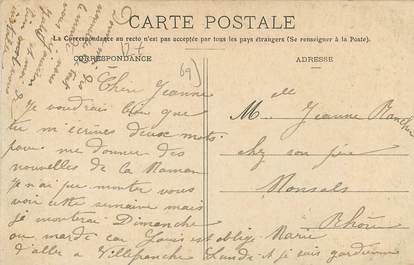 CARTE POSTALE
La Correspondance au recto n'est pas acceptée par tous les pays étrangers (Se renseigner à la Poste).
CORRESPONDANCE
ADRESSE
69)
Chere Jeanne
Je voudrais bien que
tu m'écrives deux mots
pour me donner des
nouvelles de la Maman
Je n'ai pue monter vous
voir cette semaine mais
je monterai Dimanche
ou mardi car Louis est obligé
d'aller a Villefranche Lundi et je suis gardienne
Marie
Melle Jeanne
chez son père
Monsols
Rhône